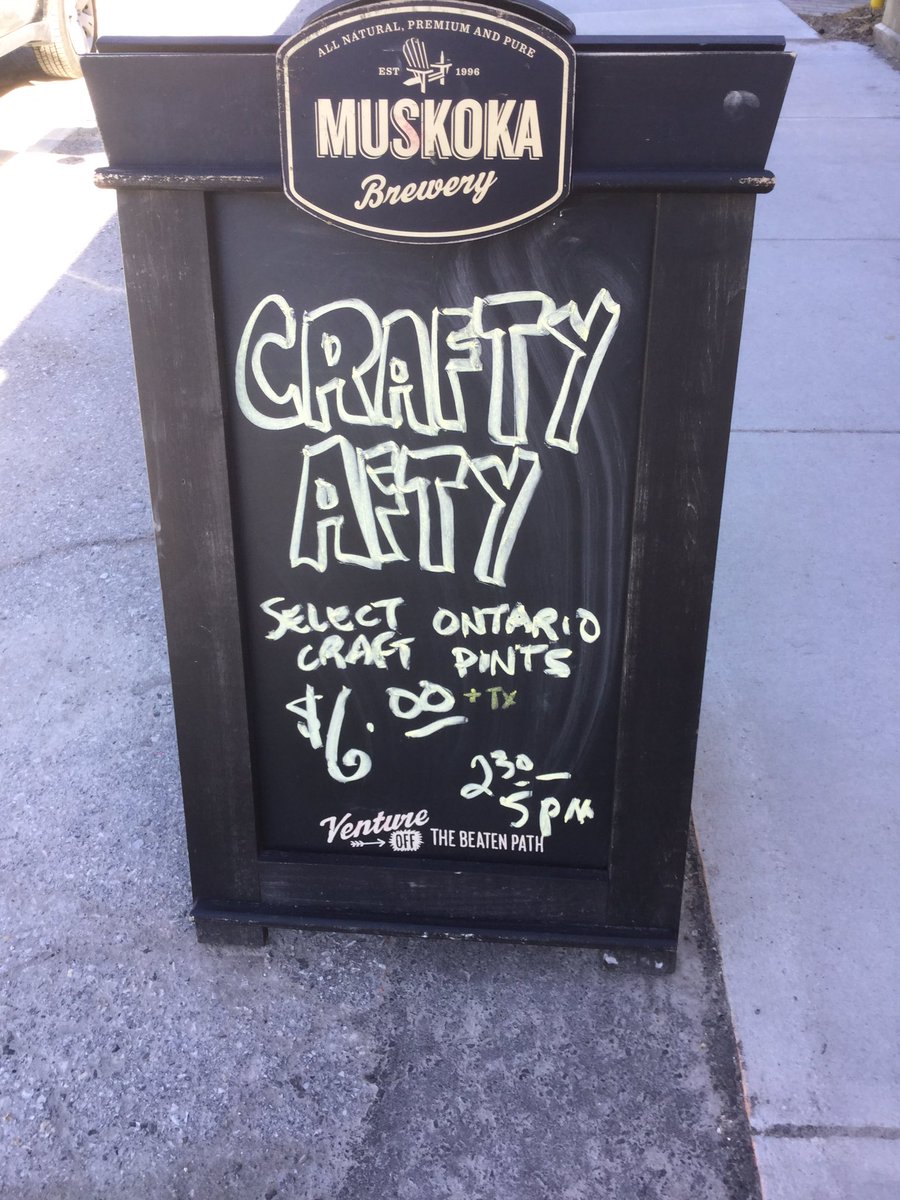 ALL NATURAL, PREMIUM AND PURE
EST 1996
MUSKOKA
Brewery
CRAFTY
AFTY
SELECT ONTARIO
CRAFT PINTS
$6.00 + TX
230-
5pm
Venture
OFF THE BEATEN PATH